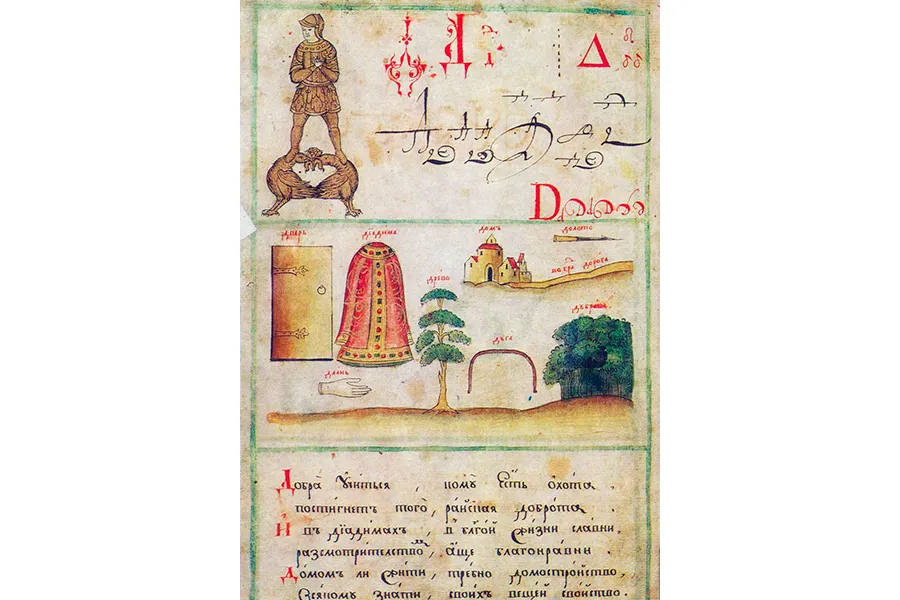 Д Д
дверь діадима домъ долото
добра дорога
древо дъбрава
дуга
длань
Добрѣ учиться , кому есть охота .
постигнетъ того , райская доброта .
И въ діадимахъ , в благой жизни славни ,
разсмотрителство , аще благонравни .
Домомъ ли жити , требно домостройство ,
Всякому знати , своихъ вещей свойство .